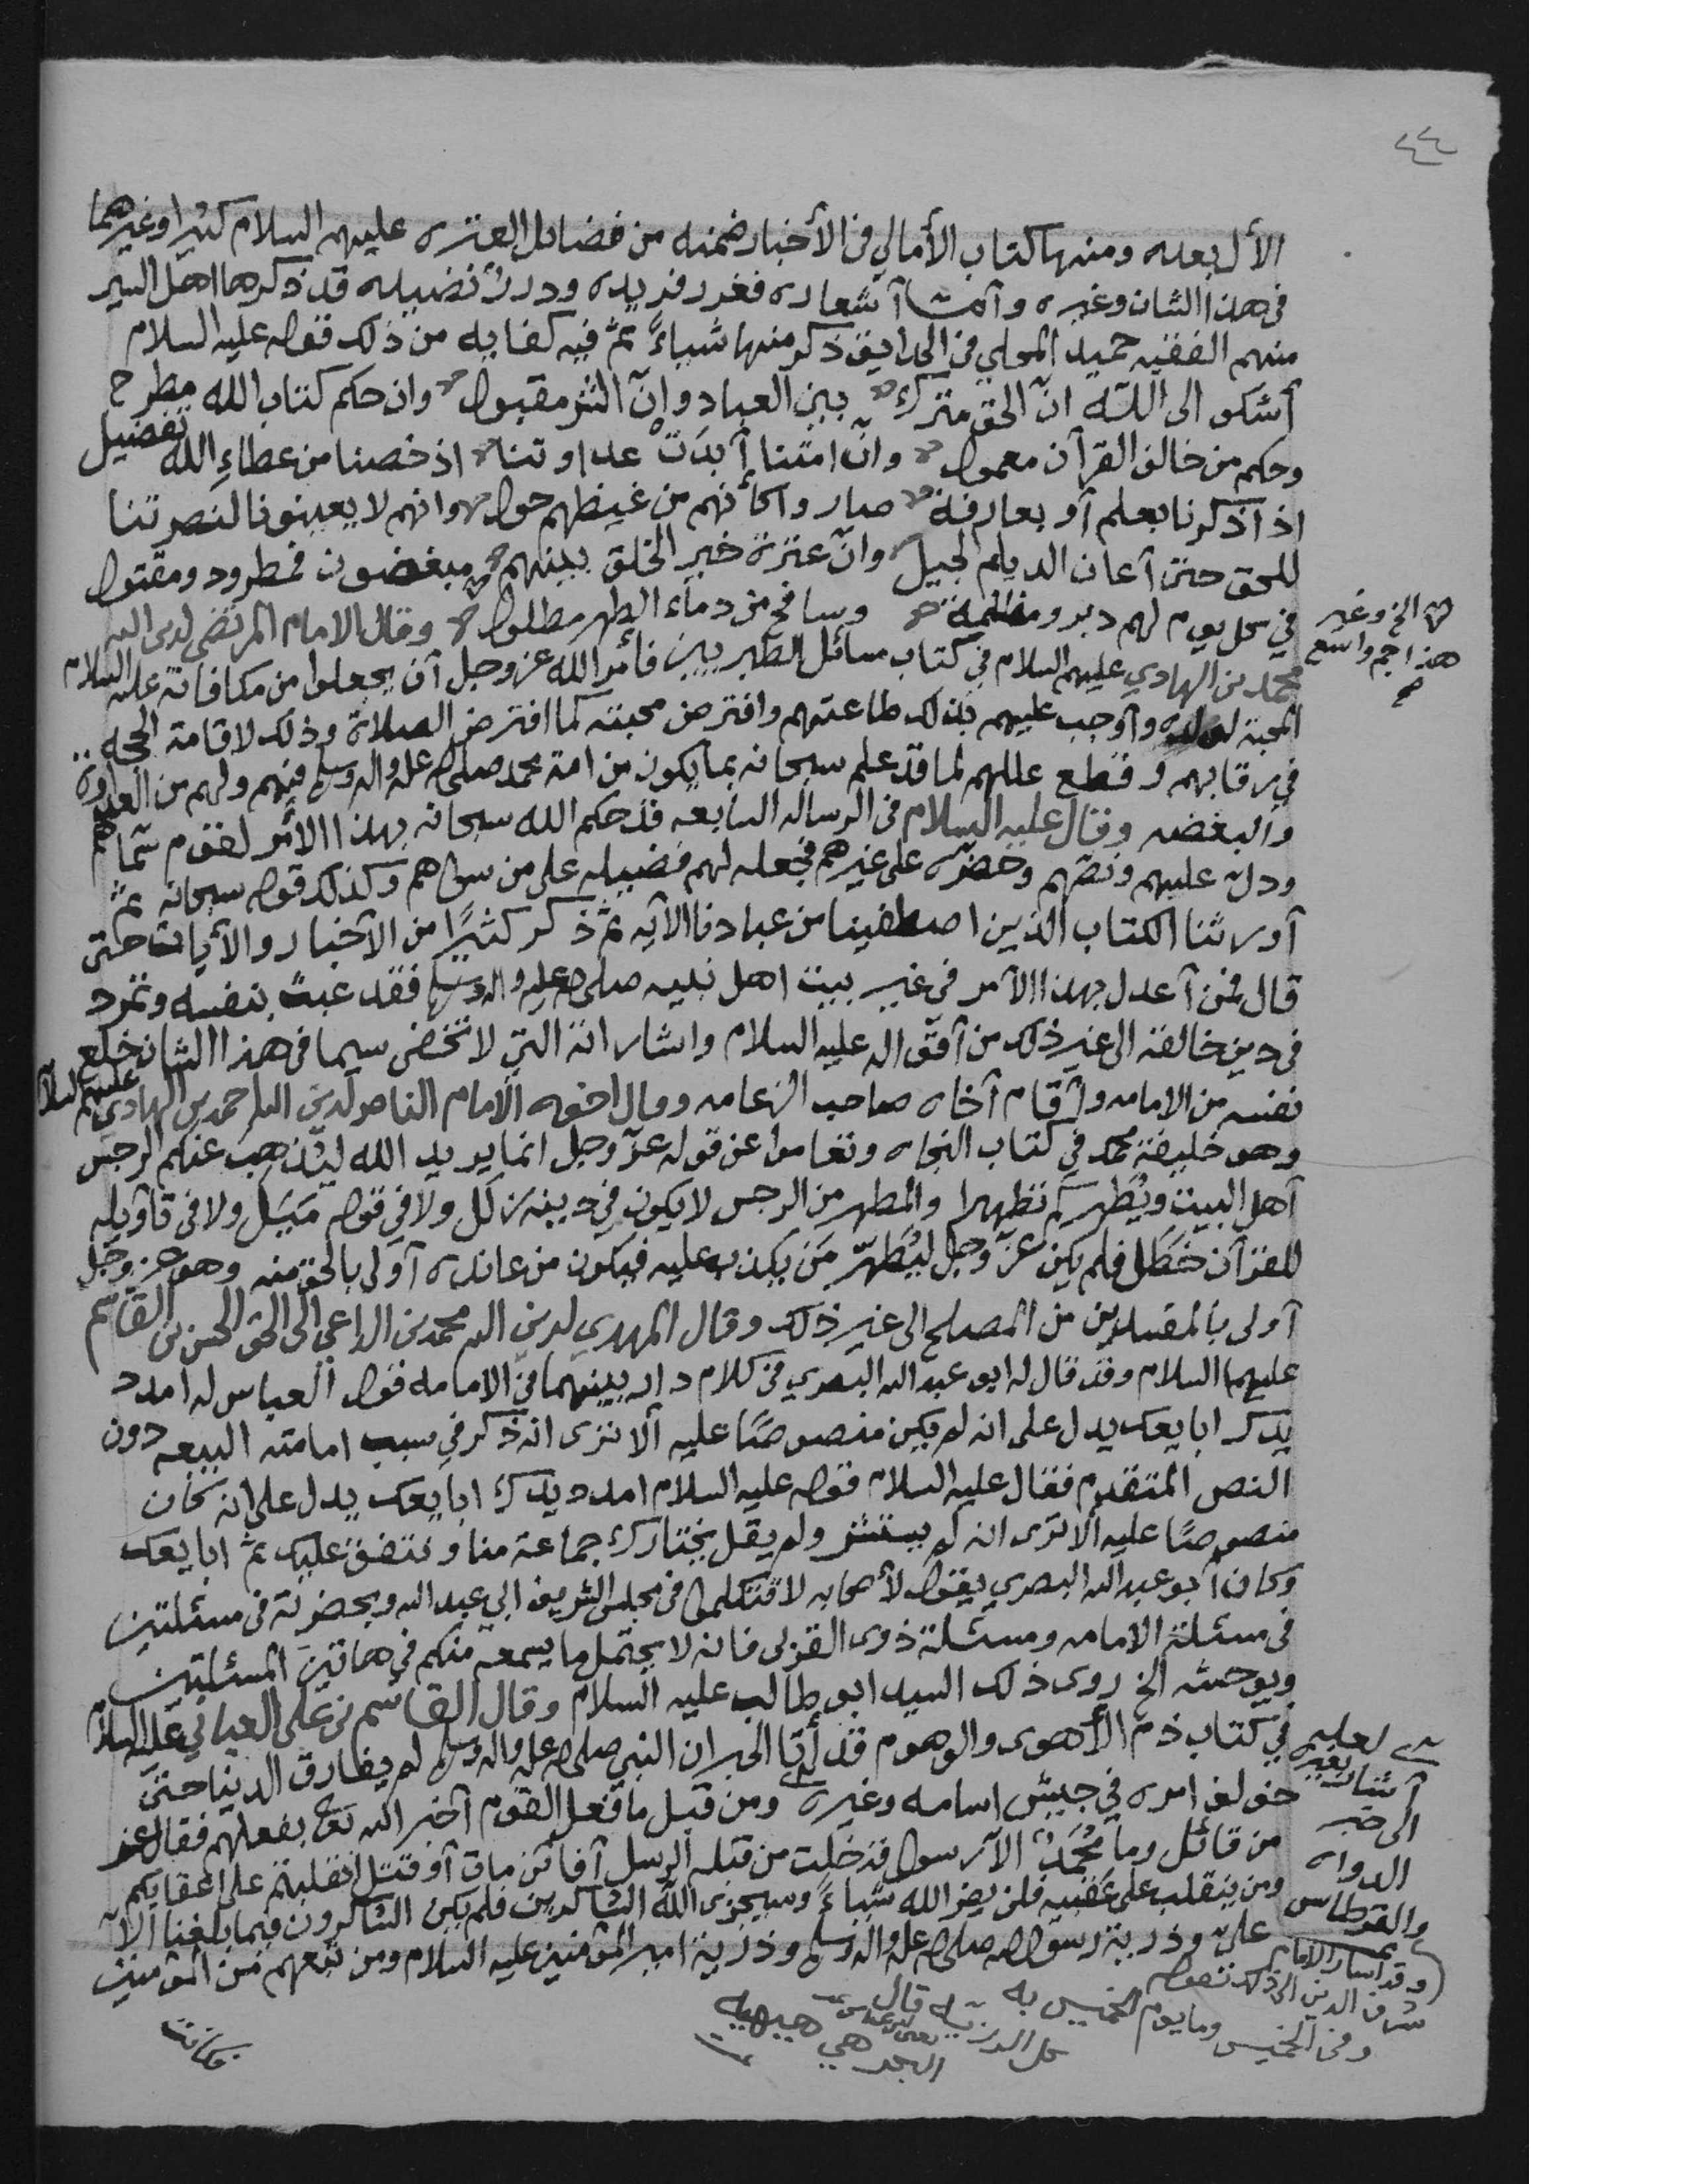 ٤٤
الأل بعله ومنها كتاب الأمالي في الأخبار ضمنه من فضائل العتره عليهم السلام كثيرا وغيرهما
في هذا الشان وغيره وأما أشعاره فغرر فريده ودرر نضيله قد ذكرها اهل السير
منهم الفقيه حميد المحلي في الحدايق ذكر منها شياءً ثم فيه كفايه من ذلك قوله عليه السلام
أشكو الى اللّه انّ الحق متروك بين العباد وإنّ الشر مقبول وان حكم كتاب الله مطرح
وحكم من خالف القرآن معمول وانّ امتنا أبدَتْ عداوتنا اذ خصنا من عطاءِ الله تفضيل
اذا ذكرنا بعلم أو بعارفة صاروا كأنهم من غيظهم حول وانهم لا يعينونا لنصرتنا
للحق حتى أعان الديلم الجيل وانّ عترة خير الخلق بينهم مبغضون فمطرود ومقتول
في كل يوم لهم دبر ومظلمة وسافح من دماء الطهر مطلول وقال الامام المرتضى لدين الله
محمد بن الهادي عليهم السلام في كتاب مسائل الطبريين فأمر الله عز وجل أن يجعلوا من مكافاته عليه السلام
المحبة لولده وأوجب عليهم بذلك طاعتهم وافترض محبته كما افترض الصلاة وذلك لاقامة الحجه
في رقابهم وقطع عللهم لما قد علم سبحانه بما يكون من امة محمد صلى الله عليه واله وسلم فيهم ولهم من العداوة
والبغضه وقال عليه السلام في الرساله السابعه قد حكم الله سبحانه بهذا الأمر لقوم سماهم
ودل عليهم ونصهم وحضره على غيرهم فجعله لهم فضيله على من سواهم وكذلك قوله سبحانه ثم
أورثنا الكتاب الذين اصطفينا من عبادنا الآيه ثم ذكر كثيرًا من الأخبار والآيات حتى
قال فمن أعدل بهذا الأمر في غير بيت اهل نبيه صلى الله عليه واله وسلم فقد عبث بنفسه وتمرد
في دين خالفه الى غير ذلك من أقواله عليه السلام واشاراته التي لا تخفى سيما في هذا الشان خلع
نفسه من الامامه وأقام أخاه صاحب الزعامه وقال اخوه الامام الناصر لدين الله احمد بن الهادي عليهم السلام
وهو خليفة محمد في كتاب النجاه وتعاموا عن قوله عز وجل انما يريد الله ليذهب عنكم الرجس
أهل البيت ويطهركم تطهيرا والمطهر من الرجس لا يكون في دينه زلل ولا في قوله مَيَل ولا في تأويله
للقرآن خطل فلم يكن عز وجل ليُطهّر مَن يكذب عليه فيكون من عانده أولى بالحق منه وهو عز وجل
أولى بالمفسدين من المصلح الى غير ذلك وقال المهدي لدين الله محمد بن الداعي الى الحق الحسن بن القاسم
عليهما السلام وقد قال له ابو عبد الله البصري في كلام دار بينهما في الامامه قول العباس له امدد
يدك ابايعك يدل على انه لم يكن منصوصًا عليه ألا ترى انه ذكر في سبب امامته البيعه دون
النص المتقدم فقال عليه السلام قوله عليه السلام امدد يدك ابايعك يدل على انه كان
منصوصًا عليه ألا ترى انه لم يستشر ولم يقل يختارك جماعة منا ونتفق عليك ثم ابايعك
وكان أبو عبد الله البصري يقول لأصحابه لا تتكلموا في مجلس الشريف ابي عبد الله وبحضرته في مسئلتين
في مسئلة الامامه ومسئلة ذوى القربى فانه لا يحتمل ما يسمعه منكم في هاتين المسئلتين
ويوحشه الخ روى ذلك السيد ابو طالب عليه السلام وقال القاسم بن علي العياني عليه السلام
في كتاب ذم الأهوى والوهوم قد أتا الخبر ان النبي صلى الله عليه واله وسلم لم يفارق الدنيا حتى
خولف امره في جيش اسامه وغيره ومن قبل ما فعل القوم أخبر الله تع بفعلهم فقال عز
من قائل وما مُحمدٌ الا رسول قد خلت من قبله الرسل أفائن مات أو قتل انقلبتم على اعقابكم
ومن ينقلب على عقبيه فلن يضر الله شياءً وسيجزى الله الشاكرين فلم يكن الشاكرون فيما بلغنا الا
عليّ وذرية رسول الله صلى الله عليه واله وسلم وذرية امير المؤمنين عليه السلام ومن تبعهم من المؤمنين
الخ وغير
هذا جم واسع
لعله
أشار بغيره
الى خبر
الدواه
والقرطاس
وقد أشار الامام
شرف الدين الى ذلك بقوله
وفي الخميس وما يوم الخميس به
كل الرزيه قال
يعني ابن عباس
هي هيه
فكانت